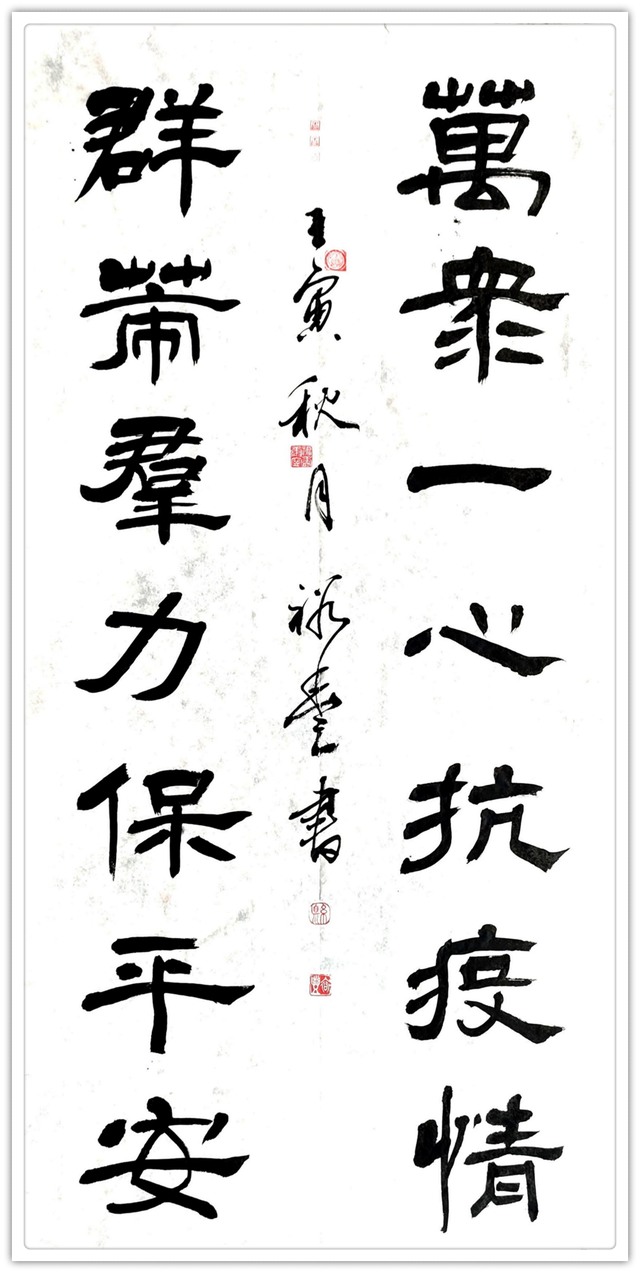 萬衆一心抗疫情
壬寅秋月裕書
群策羣力保平安